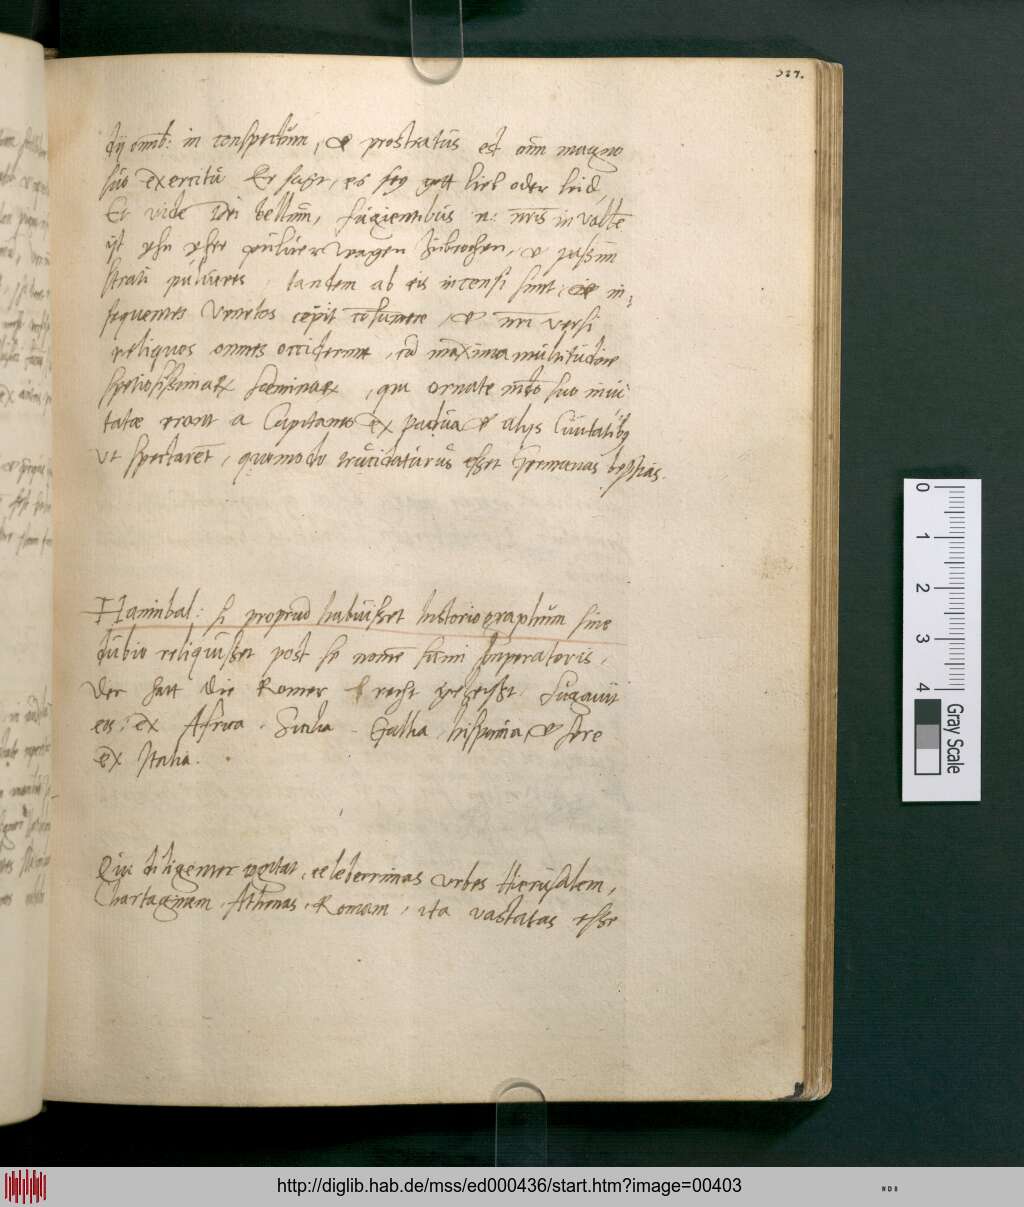 327.
in conspectum, & prostratus est cum magno
suo exercitu Er sagt, es sey gott lieb oder leid,
Et vide Dei bellum, fugientibus n: nr̄is in valle
ist yhn yhre puluer wagen zubrochen, & passim
strati pulueres, tandem ab eis incensi sunt, & in-
sequentes Venetos cepit cōsumere, & nr̄i versi
reliquos omnes occiderunt, cū maxima multitudine
speciosissimarx foeminarx, qui ornate mūdo suo inui-
tatae erant a Capitaneo Ex padua & alijs Ciuitatibq
vt spectarēt, quomodo trucidaturus esset Germanas bestias.
Hannibal: si propriū habuisset historiographum sine
dubio reliquisset post se nomē sum̄i Imperatoris,
Der hatt die Romer recht geheist. fugauit
eos, Ex Africa, Sicilia, Gallia, hispania, & fere
Ex Italia.
Qui diligenter cogitat, celeberrimas vrbes Hierusalem,
Chartaginem, Athenas, Romam, ita vastatas esse
0 1 2 3 4
Gray Scale
http://diglib.hab.de/mss/ed000436/start.htm?image=00403